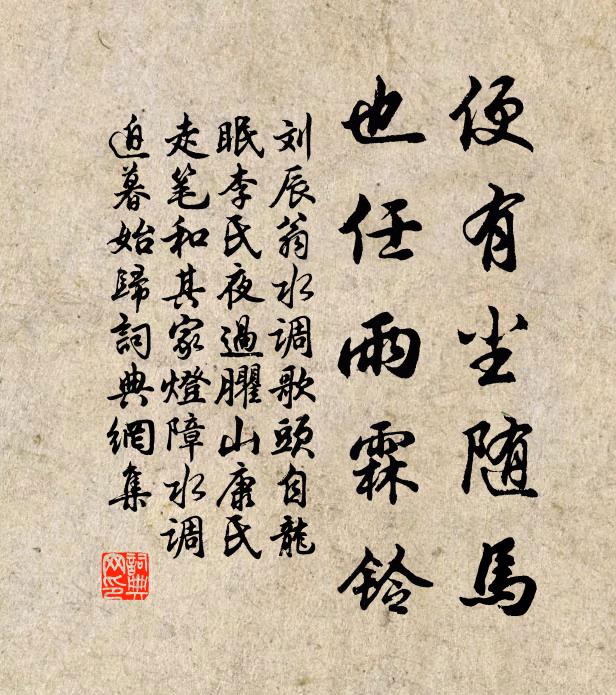 便有尘随馬
也任雨霖铃
刘辰翁水调歌頭自龍
眠李氏夜過臞山康氏
走笔和其家燈障水调
迫暮始歸詞典網集
詞典
网印